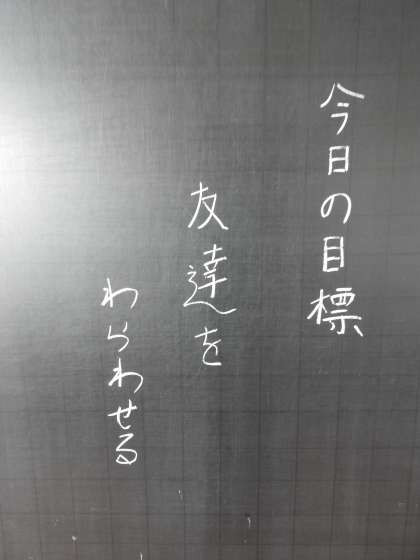 今日の目標
友達を
わらわせる